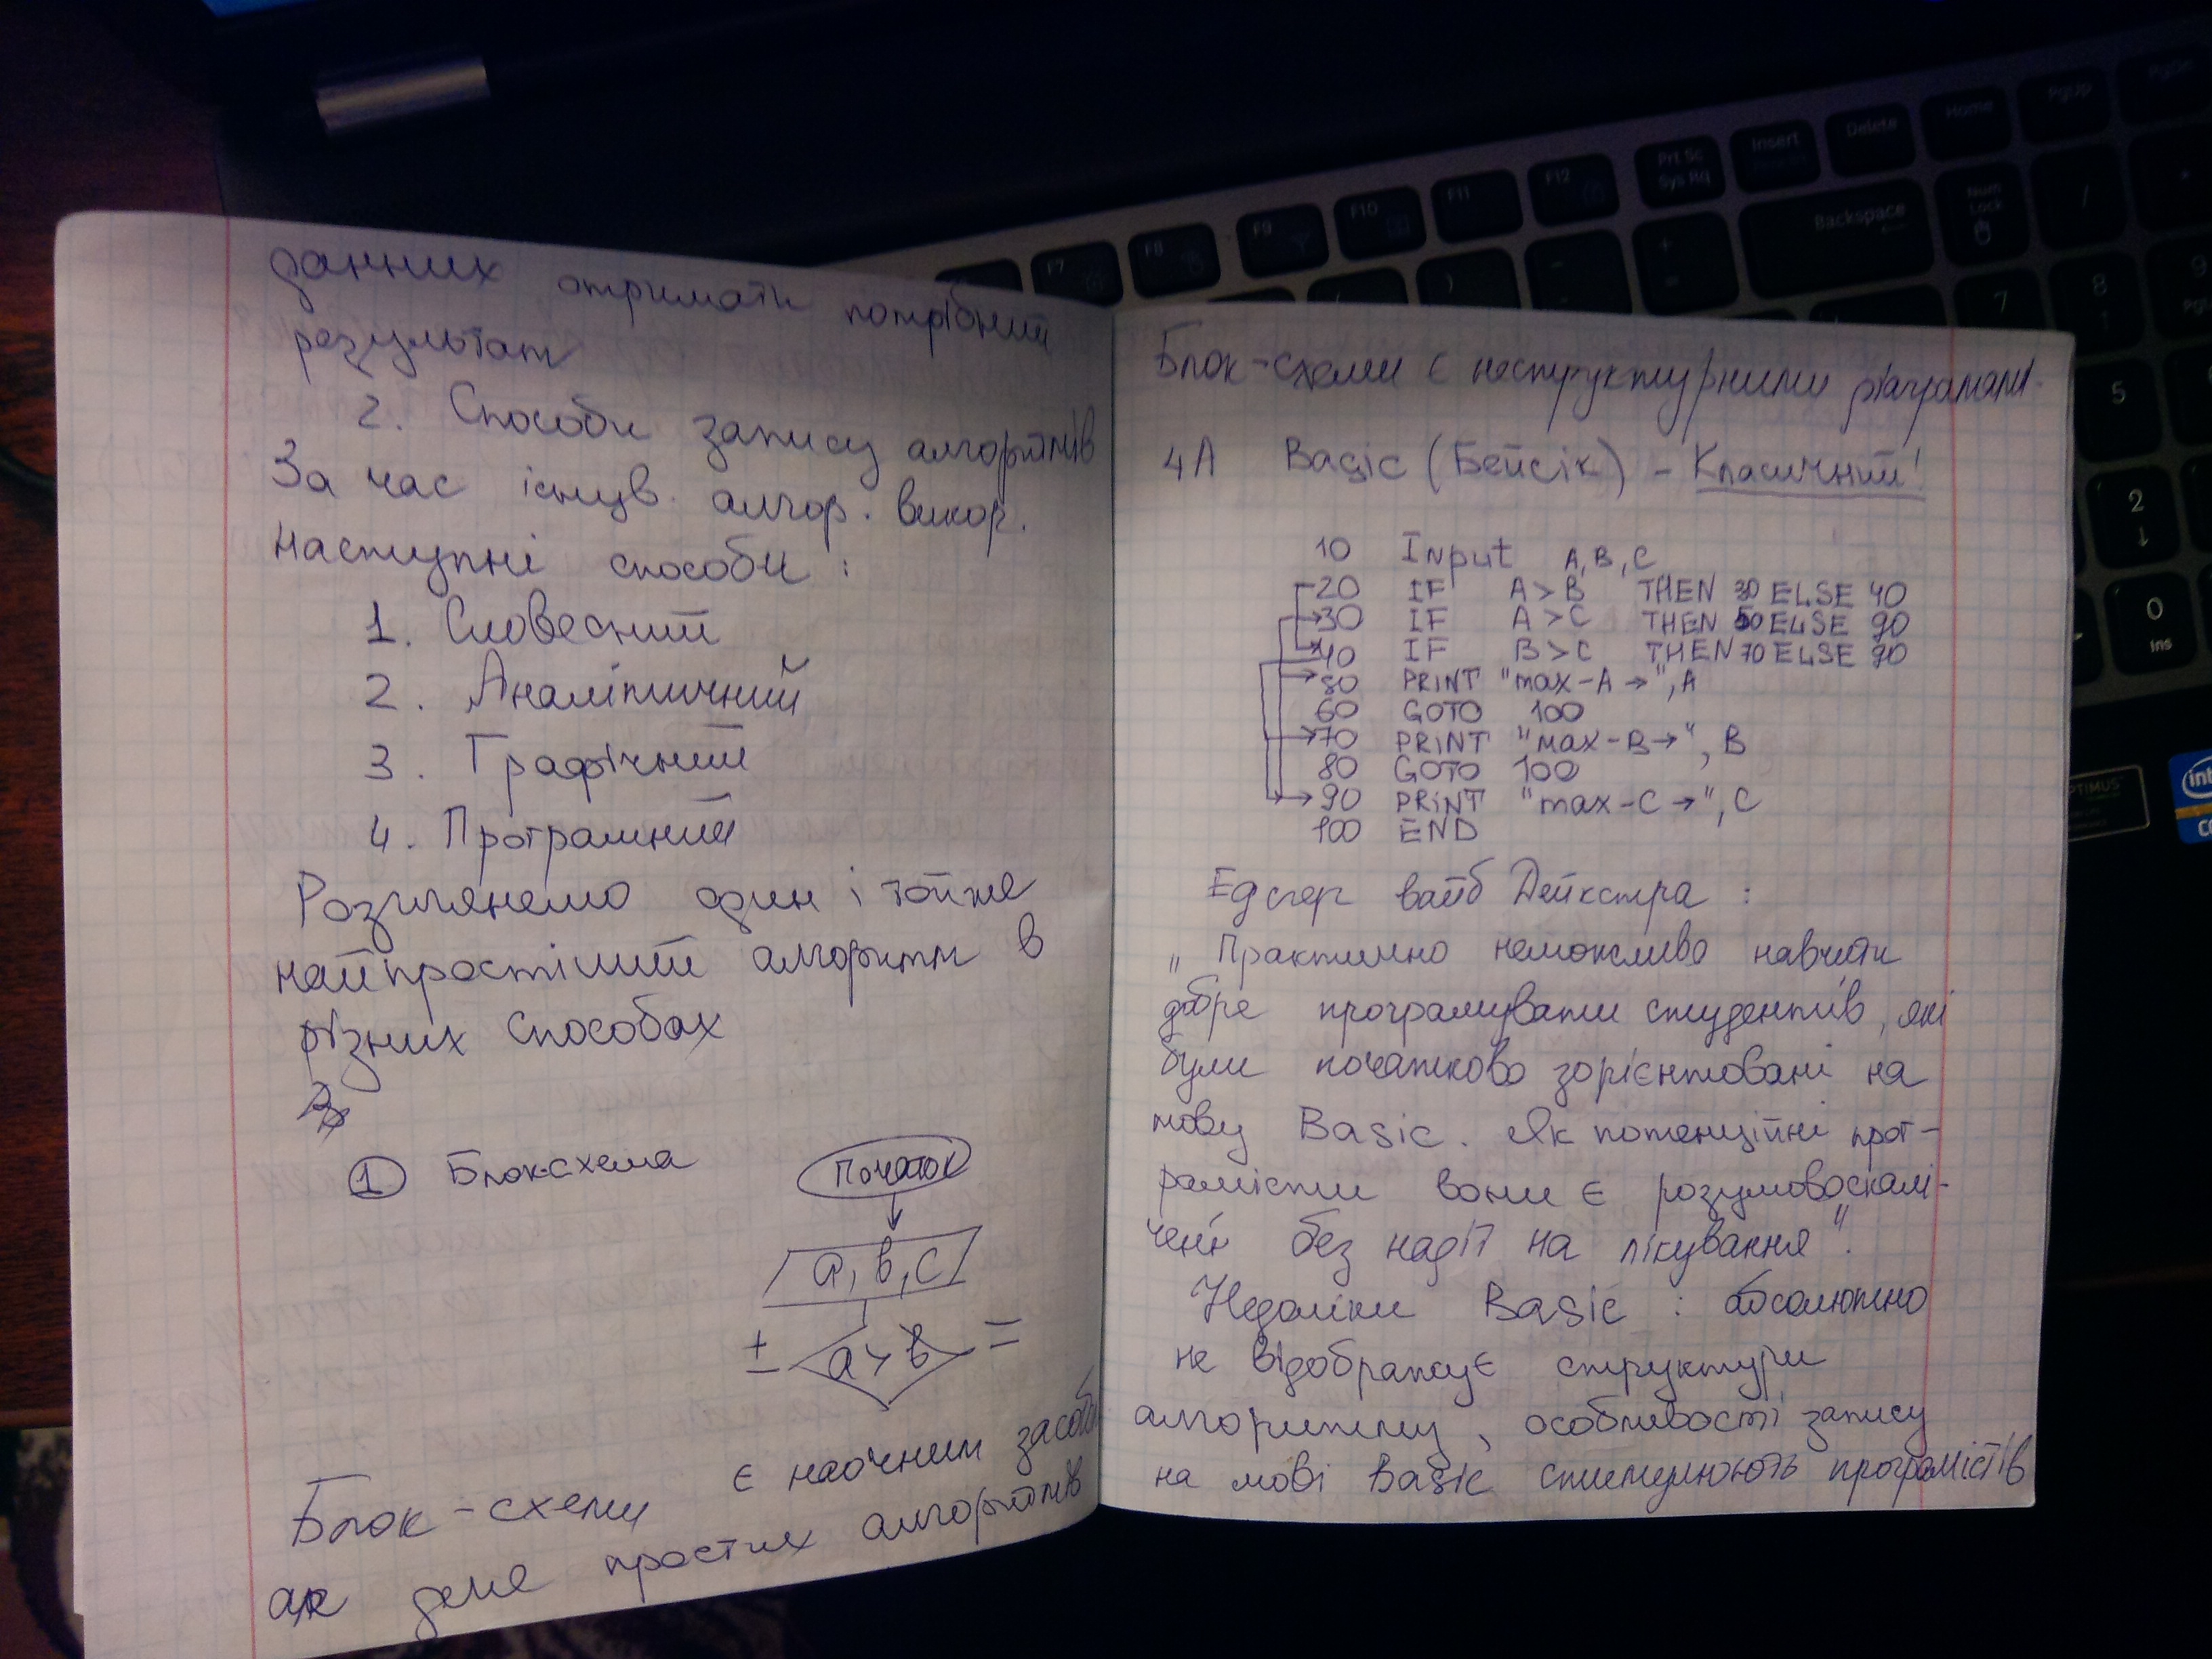 данних отримати потрібний
результат
2. Способи запису алгоритмів
За час існув. алгор. викор.
наступні способи:
1. Словесний
2. Аналітичний
3. Графічний
4. Програмний
Розглянемо один і тойже
найпростіший алгоритм в
різних способах
① Блок-схема
Початок
a, b, c
+ a > b =
Блок-схеми є наочним засоб
для дуже простих алгоритмів
Блок-схеми є неструктурними діаграмами.
4А Basic (Бейсік) - Класичний!
10 Input A, B, C
20 IF A > B THEN 30 ELSE 40
30 IF A > C THEN 50 ELSE 90
40 IF B > C THEN 70 ELSE 90
50 PRINT "max-A→", A
60 GOTO 100
70 PRINT "max-B→", B
80 GOTO 100
90 PRINT "max-C→", C
100 END
Едсгер вайб Дейкстра:
„Практично неможливо навчити
добре програмувати студентів, які
були початково зорієнтовані на
мову Basic. Як потенційні прог-
рамісти вони є розумовоскалі-
чені без надії на лікування".
Недоліки Basic: абсолютно
не відображує структури
алгоритму, особливості запису
на мові Basic стимулюють програмістів
F7
F8
F9
F10
F11
F12
Prt Sc
Sys Rq
Insert
Delete
Home
PgUp
Backspace
Num
Lock
7
8
9
5
2
0
Ins